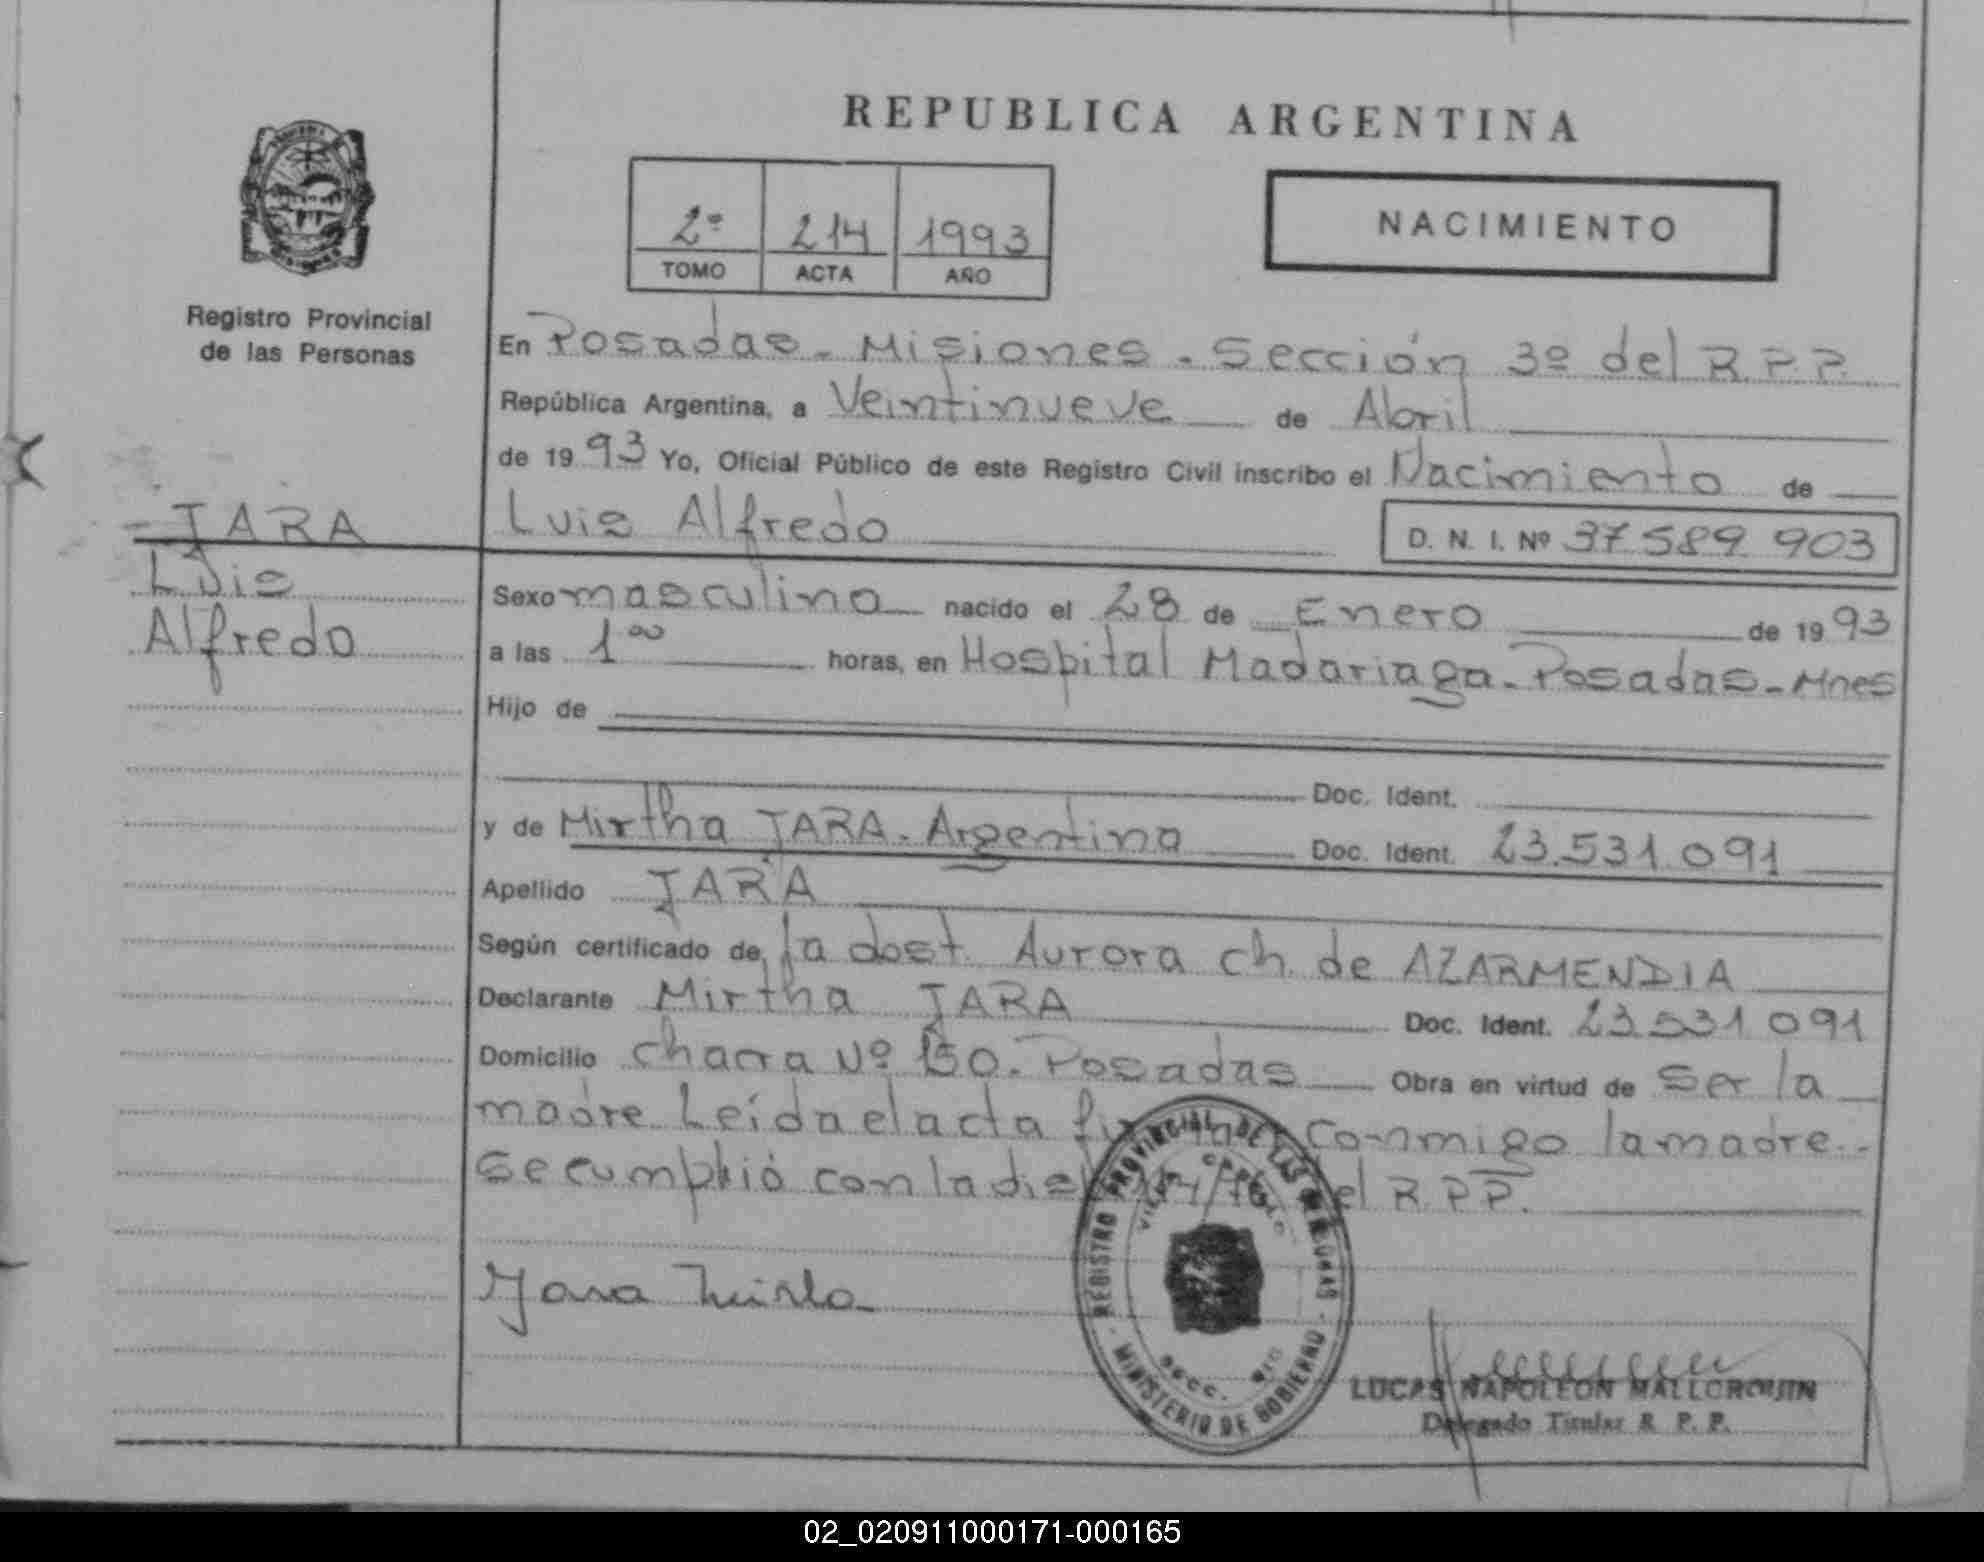 REPUBLICA ARGENTINA
2º 214 1993
TOMO ACTA AÑO
NACIMIENTO
Registro Provincial
de las Personas
JARA
Luis
Alfredo
En Posadas - Misiones - Sección 3º del R.P.P.
República Argentina, a Veintinueve de Abril
de 1993 Yo, Oficial Público de este Registro Civil inscribo el Nacimiento de
Luis Alfredo D. N. I. Nº 37 589 903
Sexo masculino nacido el 28 de Enero de 1993
a las 1 00 horas, en Hospital Madariaga - Posadas - Mnes
Hijo de
Doc. Ident.
y de Mirtha JARA - Argentina Doc. Ident. 23.531.091
Apellido JARA
Según certificado de la obst. Aurora ch. de AZARMENDIA
Declarante Mirtha JARA Doc. Ident. 23.531.091
Domicilio chacra Nº 150. Posadas Obra en virtud de ser la
madre. Leída el acta conmigo la madre.-
se cumplió con la el R.P.P.
Jara Mirta
REGISTRO PROVINCIAL DE LAS PERSONAS
MINISTERIO DE GOBIERNO
SECC.
LUCAS NAPOLEON MALLORQUIN
Delegado Titular R. P. P.
02_020911000171-000165